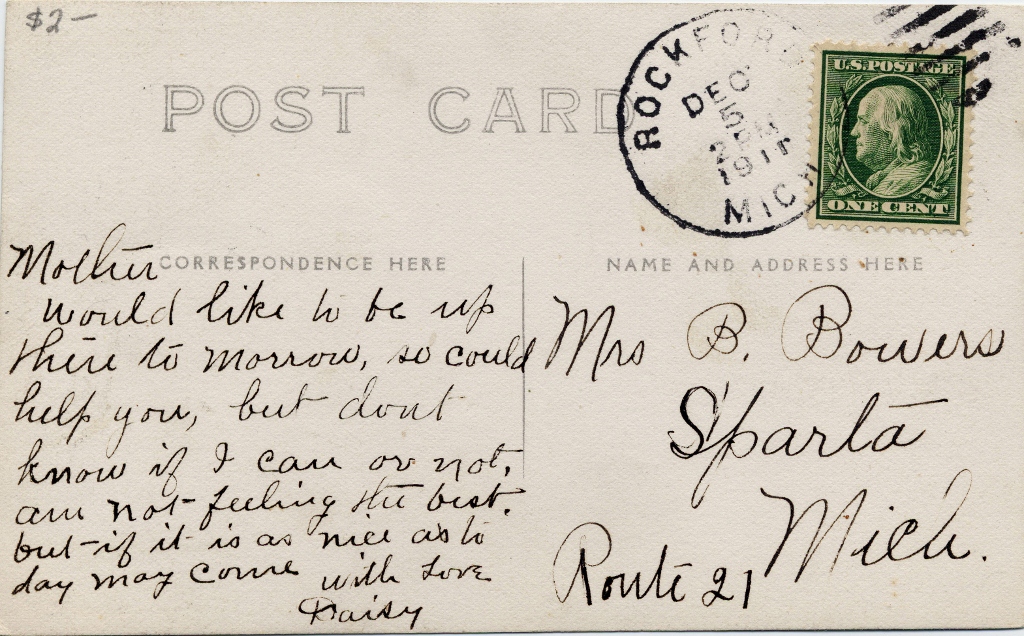 $2-
POST CARD
ROCKFORD
DEC
5
2 PM
1911
MICH
U.S. POSTAGE
ONE CENT
CORRESPONDENCE HERE
NAME AND ADDRESS HERE
Mother
would like to be up
there to morrow, so could
help you, but dont
know if I can or not,
am not feeling the best.
but if it is as nice as to
day may come with Love
Daisy
Mrs B. Bowers
Sparta
Mich.
Route 21